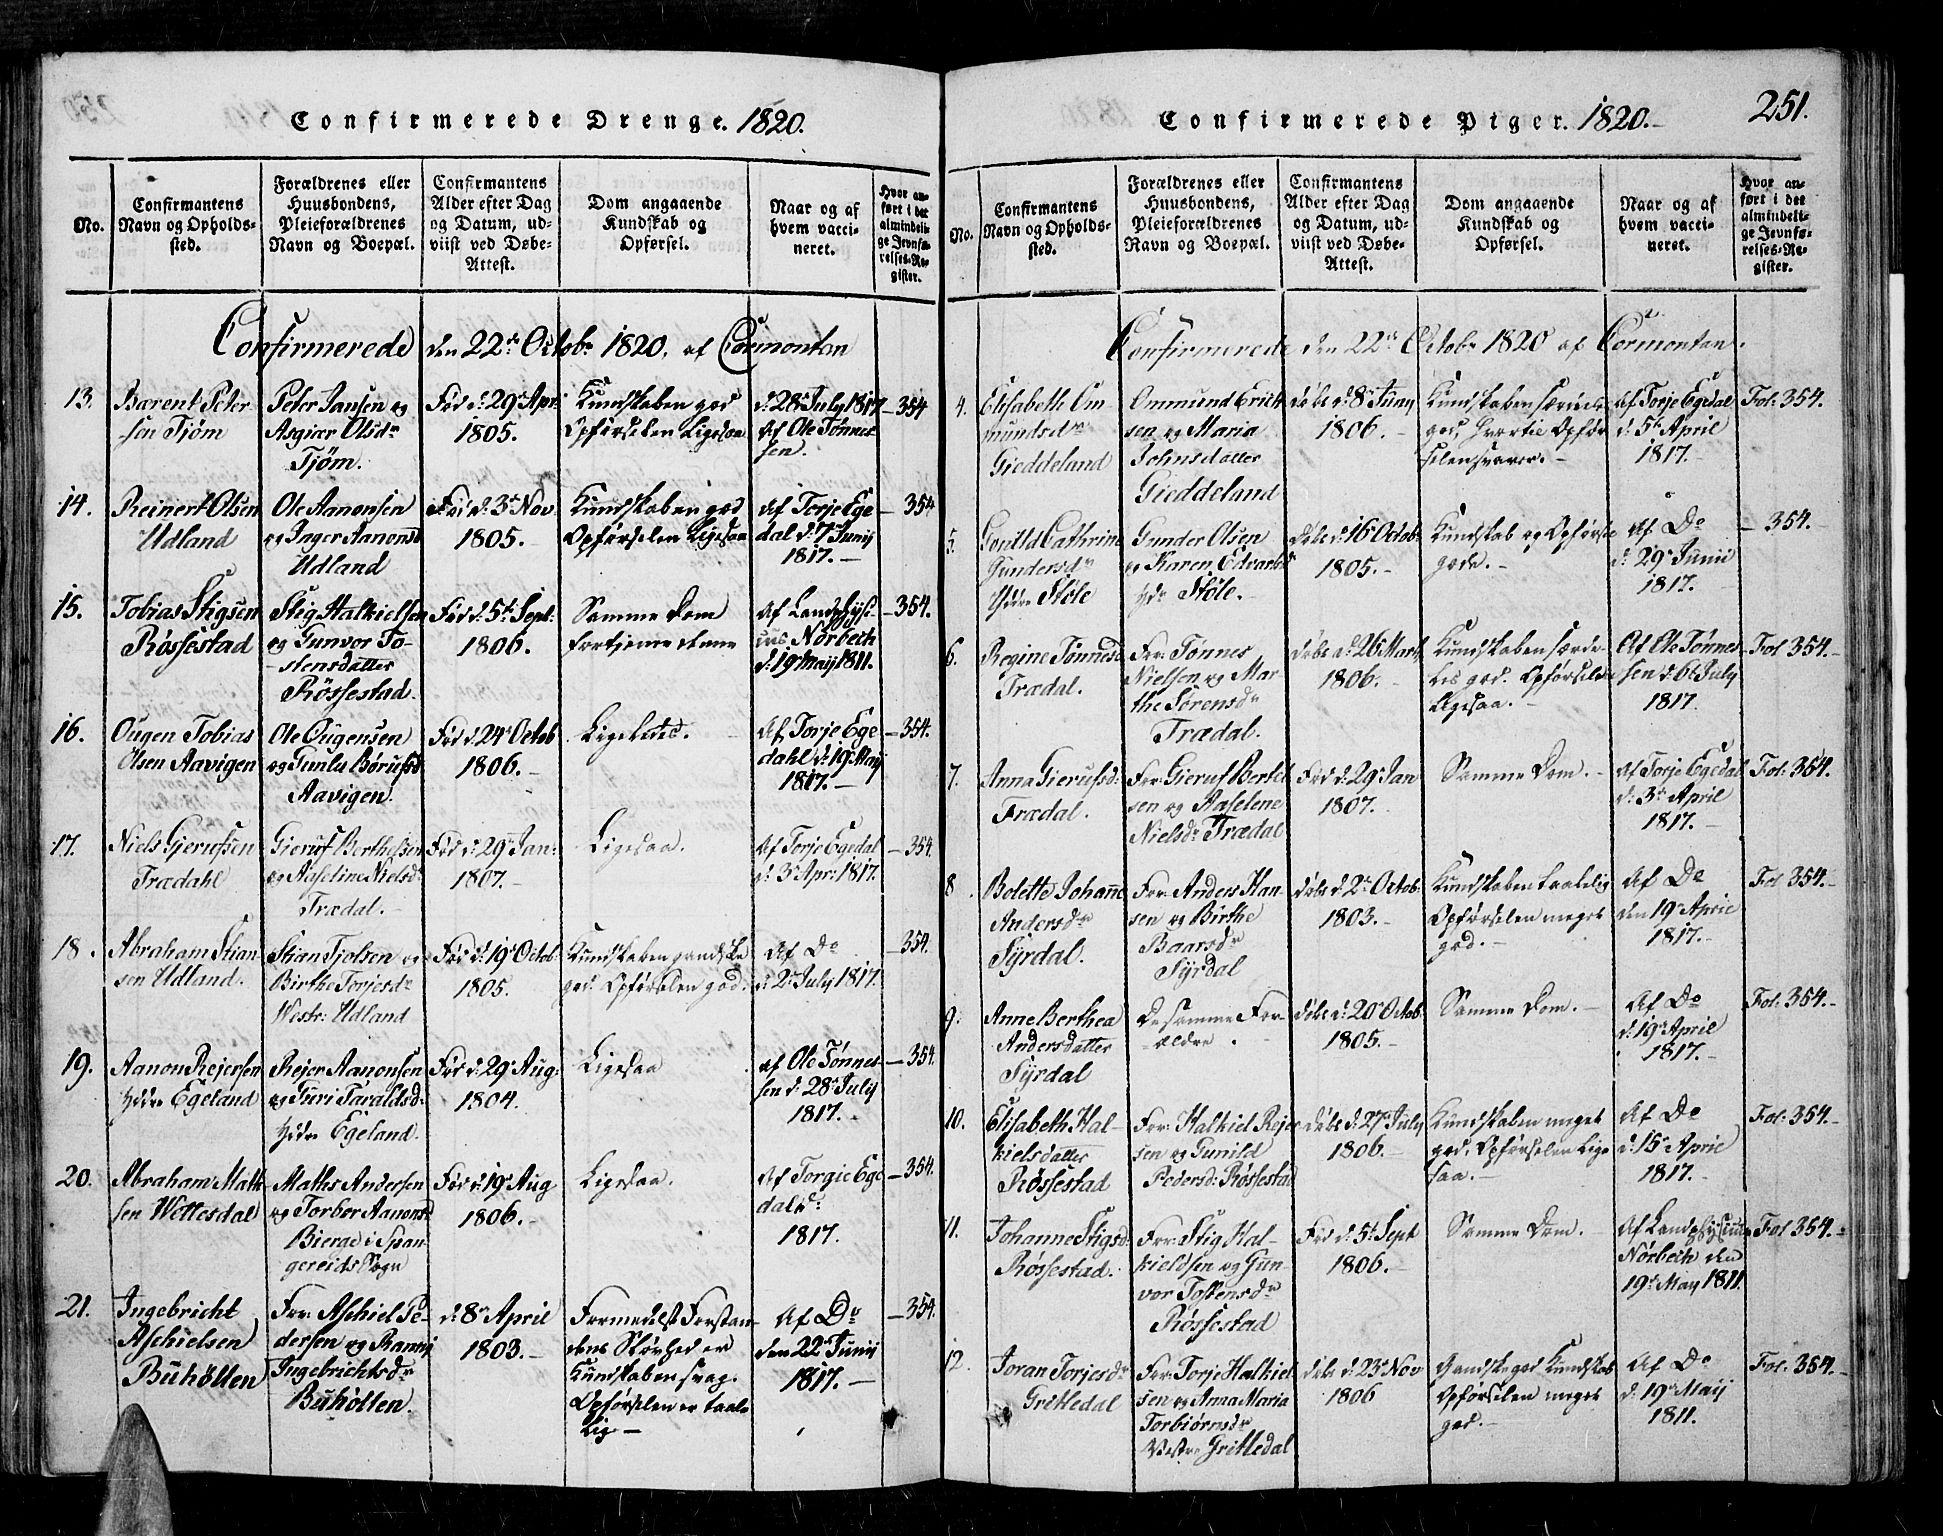 Confirmerede Drenge. 1820.
No.
Confirmantens Navn og Opholds-sted.
Forældrenes eller Huusbondens, Pleieforældrenes Navn og Boepæl.
Confirmantens Alder efter Dag og Datum, ud-viist ved Døbe-Attest.
Dom angaaende Kundskab og Opførsel.
Naar og af hvem vacci-neret.
Hvor an-ført i det almindeli-ge Jevnfø-relses-Re-gister.
Confirmerede den 22de Octobr 1820. af Cormontan
13. Barent Peter
sen Tjøm
Peter Jansen og
Asgiær Olsdr
Tjöm.
Fød d: 29de Apr:
1805.
Kundskaben god
Opførselen Ligesaa
d: 28de July 1817
Af Ole Tønnes
sen.
354
14. Reinert Olsen
Udland
Ole Aanonsen
og Inger Aanonsd
Udland
Fød d: 3de Nov:
1805.
Kundskaben god
Opførselen Ligesaa
Af Torje Ege
dal d: 7de Junij
1817.
354
15. Tobias Stigsen
Røssestad
Stig Halkielsen
og Gunvor To-
stensdatter
Røssestad.
Fød d: 5te Sept:
1806.
Samme Dom
fortjener denne
Af Landphysi
cus Nørbech
d: 19de Maij 1811.
354.
16. Ougen Tobias
Olsen Aavigen
Ole Ougensen
og Gunla Børufsd
Aavigen.
Fød d: 24de Octob
1806.
Ligeledes.
Af Torje Ege
dahl d: 19de Maij
1817.
354.
17. Niels Gjerufsen
Trædahl
Gieruf Berthelsen
og Aaseline Nielsdr
Trædal.
Fød d: 29de Jan:
1807.
Ligesaa.
Af Torje Egedal
d: 3de Apr: 1817.
354.
18. Abraham Stian
sen Udland.
Stian Tjolsen og
Birthe Torjesdr
Westr: Udland
Fød d: 19de Octob:
1805.
Kundskaben gandske
god. Opførselen god.
Af Do
d: 2de July 1817.
354.
19. Aanon Rejersen
Ydre Egeland
Rejer Aanonsen
og Turi Taraldsd:
Ydre Egeland.
Fød d: 29de Aug:
1804.
Ligesaa
af Ole Tønnes-
sen d: 28de July
1817.
354
20. Abraham Math
sen Wettesdal
Mathis Andersen
og Torbor Aanonsd
Bierge i Span-
gereids Sogn
Fød d: 19de Aug
1806.
Ligesaa.
Af Torgie Ege
dal d:
1817.
354.
21. Ingebricht
Aschielsen
Buhölten
For: Aschiel Pe-
dersen og Ranvi
Ingebrichtsdr
Buhölten.
d: 8de April
1803.
Formedelst Forstan-
dens Sløvhed er
Kundskaben svag.
Opførselen er taale
lig
Af Do
den 22de Junij
1817.
354.
Confirmerede Piger. 1820. 251.
No.
Confirmantens Navn og Opholds-sted.
Forældrenes eller Huusbondens, Pleieforældrenes Navn og Boepæl.
Confirmantens Alder efter Dag og Datum, ud-viist ved Døbe-Attest.
Dom angaaende Kundskab og Opførsel.
Naar og af hvem vacci-neret.
Hvor an-ført i det almindeli-ge Jevnfø-relses-Re-gister.
Confirmerede den 22de Octobr 1820 af Cormontan.
4. Elisabeth Om-
mundsdr
Gieddeland
Ommund Erich
sen og Maria
Johnsdatter
Gieddeland
døbt d: 8de Junij
1806.
Kundskaben særdeles
god, hvortil Opfør
selen svarer.
Af Torje Egedal
d: 5te April
1817.
Fol: 354.
5. Gonild Cathrine
Gundersdr
Ydre Støle
Gunder Olsen
og Karen Edvardsd
Ydr Støle.
døbt d: 16de Octob:
1805.
Kundskab og Opførsel
gode.
Af Do
d: 29de Junii
1817.
354.
6. Regine Tønnesd
Trædal.
For: Tønnes
Nielsen og Mar
the Sørensdr
Trædal.
døbt d: 26 Marts
1806.
Kundskaben særde-
les god. Opførselen
Ligesaa.
Af Ole Tønnes
sen d: 6te July
1817.
Fol 354.
7. Anna Gierufsd:
Trædal.
For: Gieruf Bertel
sen og Aaselene
Nielsdr Trædal
Fød d: 29de Jan
1807.
Samme Dom.
Af Torje Egedal
d: 3de April
1817.
Fol: 354.
8. Bolette Johanne
Andersdr
Syrdal.
For: Anders Han
sen og Birthe
Baarsdr
Syrdal
døbt d: 2de Octob:
1803.
Kundskaben taalelig
Opførselen meget
god.
Af Do
den 19de April
1817.
Fol 354.
9. Anne Berthea
Andersdatter
Syrdal
De samme For-
ældre.
døbt d: 20de Octob:
1805.
Samme Dom.
Af Do
d: 19de April
1817.
Fol: 354.
10. Elisabeth Hal-
kielsdatter
Røssestad
For: Halkiel Rejer
sen og Gunild
Pedersd: Røssestad
døbt d: 27de July
1806.
Kundskaben meget
god, Opførselen Lige
saa.
Af Do
d: 15de April
1817.
Fol: 354.
11. Johanne Stigsd
Røssestad.
For: Stig Hal-
kieldsen og Gun-
vor Tostensdr
Røssestad
Fød d: 5te Sept
1806.
Samme Dom.
Af Landphysicus
Nørbech den
19de May 1811.
Fol 354.
12. Joran Torjesdr
Grittedal
For: Torje Halkiel
sen og Anna Maria
Torbiørnsdr
Vestre Grittedal
døbt d: 23de Nov
1806
Gandske god Kundskab
Opførselen meget
god.
Af Do
d: 19de Maij
1811.
Fol: 354.